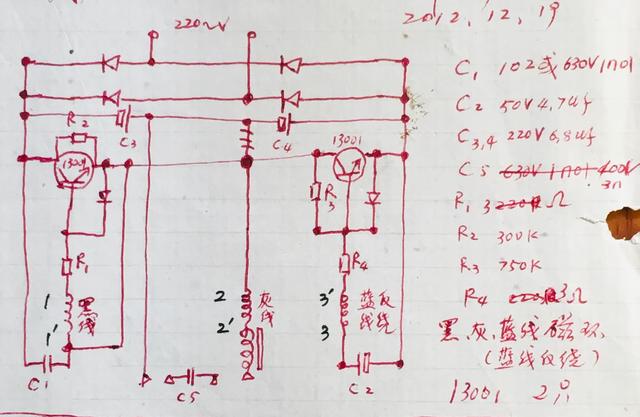 220~V
2012,12,19
C1 102或630V1n01
C2 50V4,7uf
C3,4 220V6,8uf
C5 630V1n01 400V 3n
R1 3 220k Ω
R2 300K
R3 750K
R4 220k 3Ω
黑灰蓝线磁环
(蓝线反绕)
13001 2只
R2
C3
C4
13001
13001
R3
R1
R4
1
1'
黑线
2
2'
灰线
3'
3
蓝反线绕
C1
C5
C2